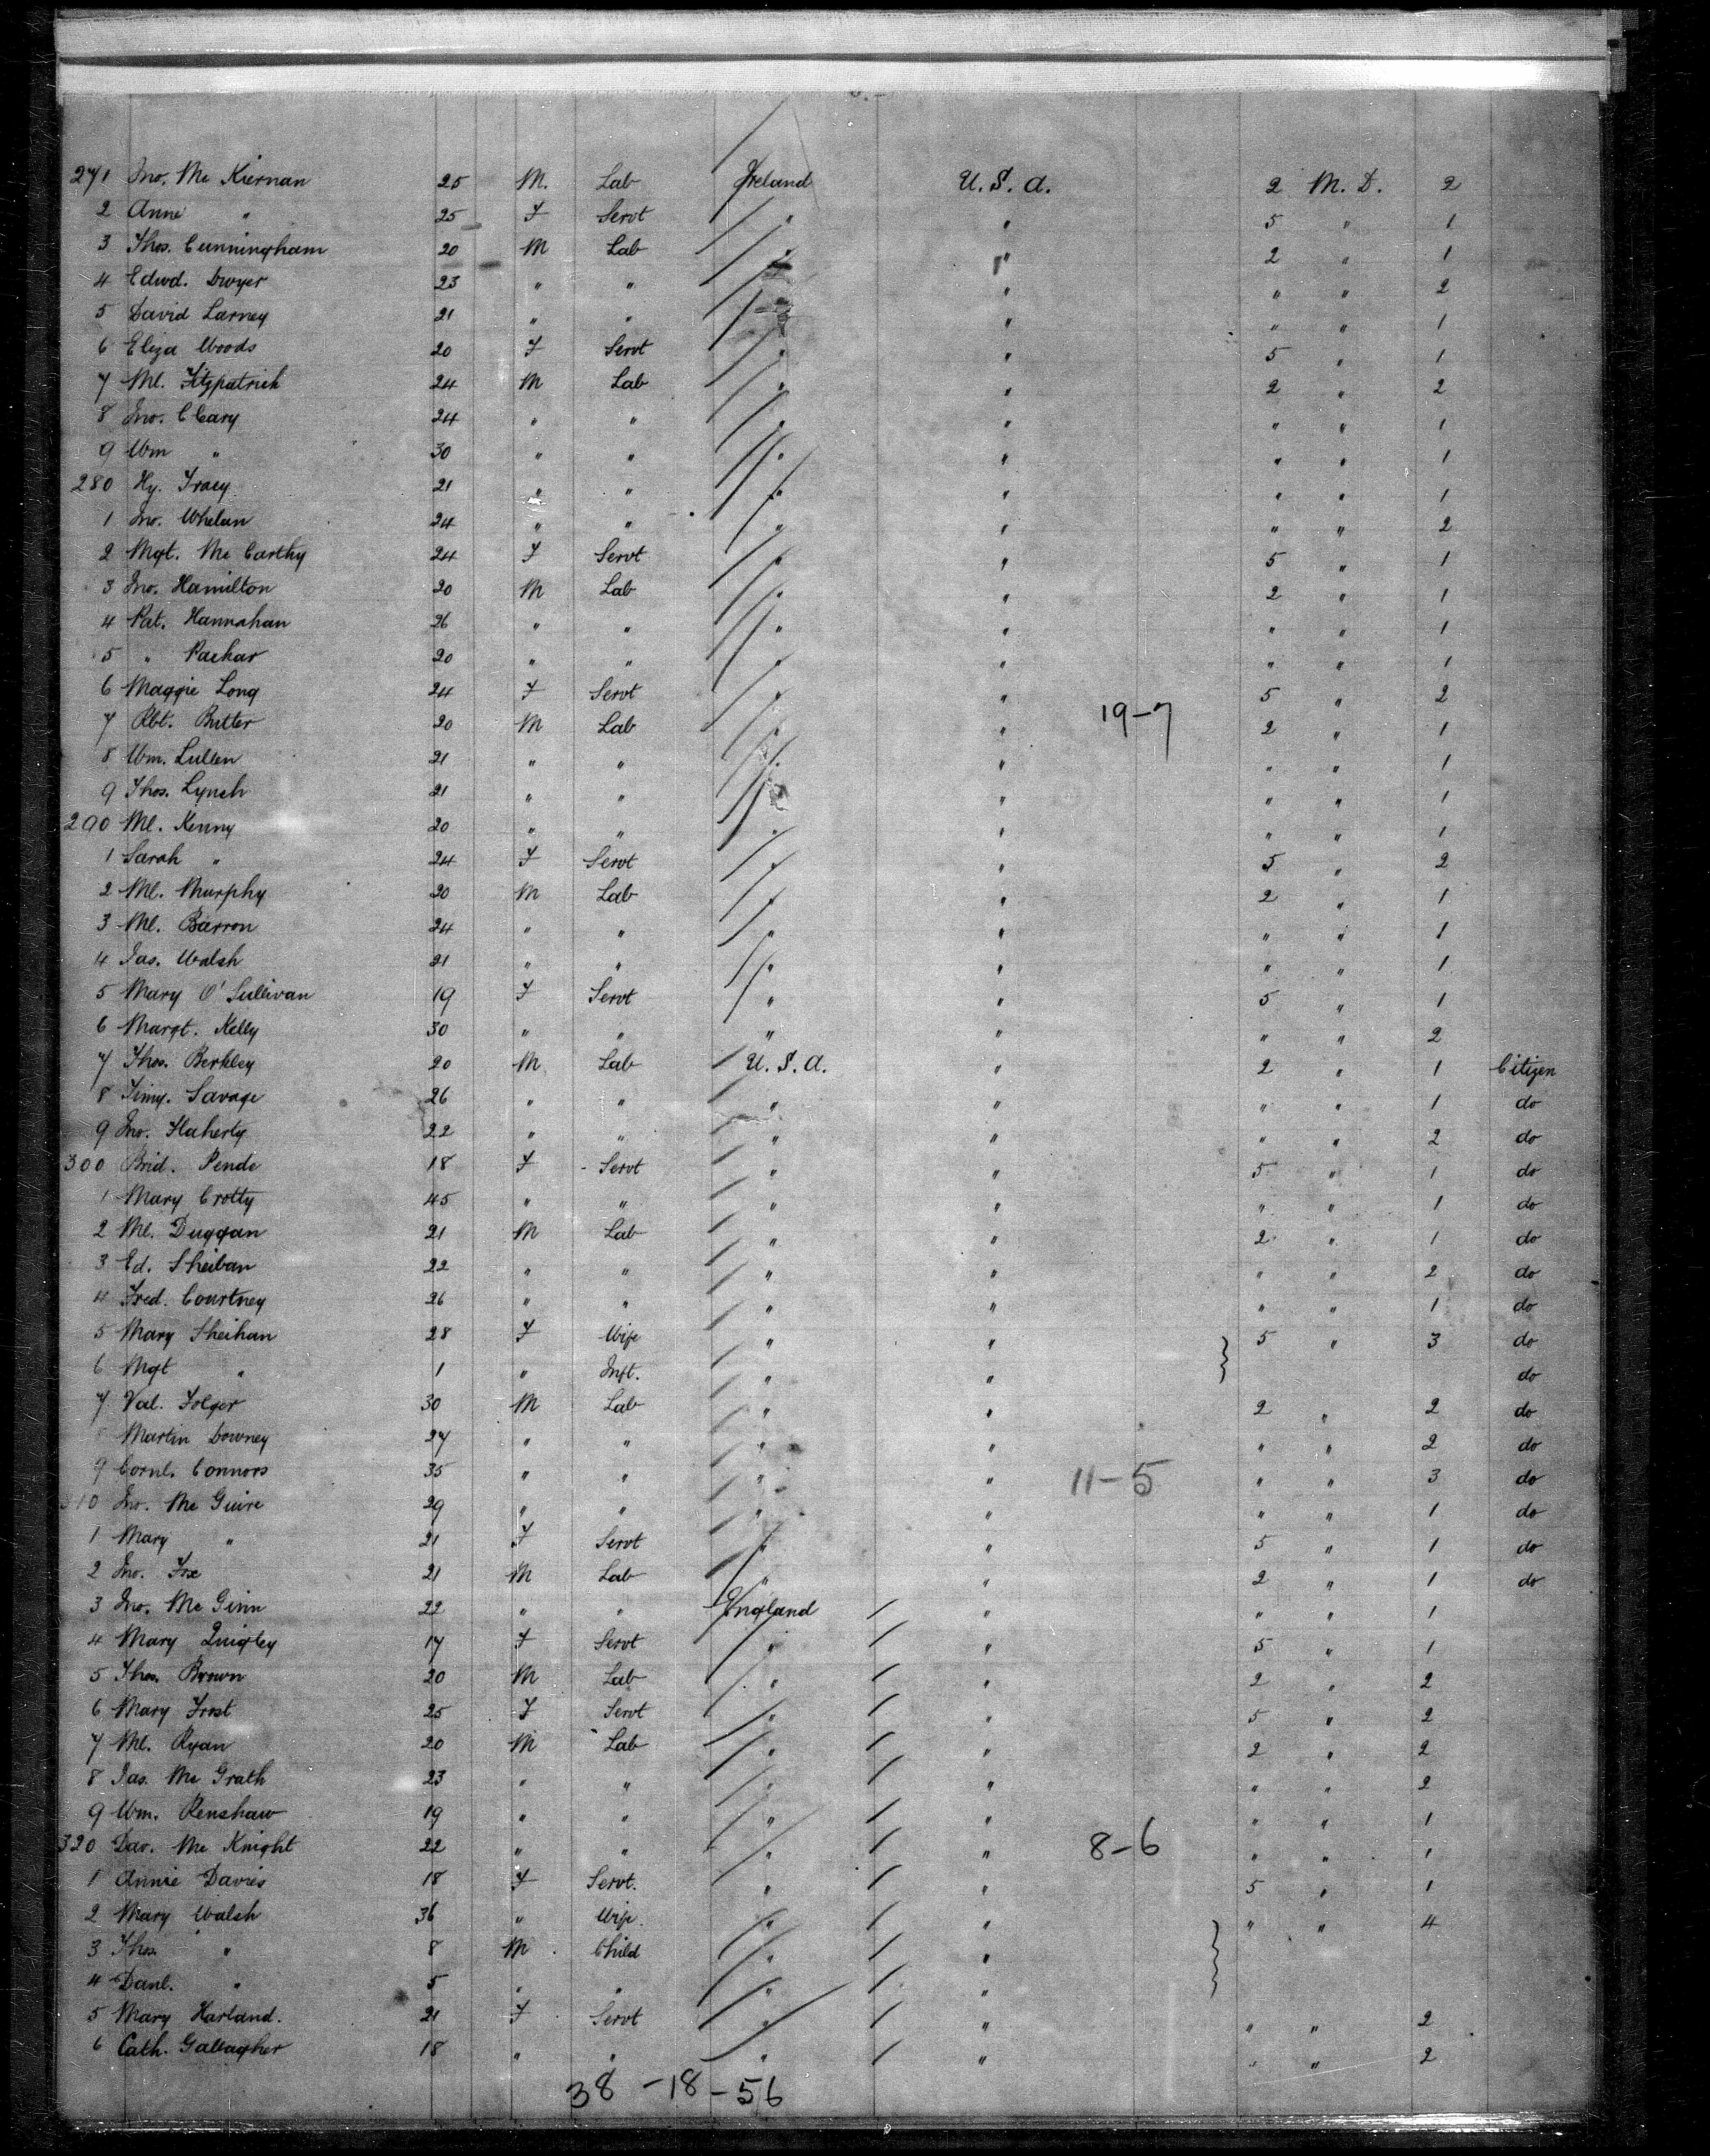 271 Jno. Mc Kiernan 25 M. Lab Ireland U. S. A. 2 M. D. 2
2 Anne " 25 F Servt " " 5 " 1
3 Thos. Cunningham 20 M Lab " " 2 " 1
4 Edwd. Dwyer 23 " " " " " " 2
5 David Larney 21 " " " " " " 1
6 Eliza Woods 20 F Servt " " 5 " 1
7 Ml. Fitzpatrick 24 M Lab " " 2 " 2
8 Jno. Cleary 24 " " " " " " 1
9 Wm " 30 " " " " " " 1
280 Hy. Tracy 21 " " " " " " 1
1 Jno. Whelan 24 " " " " " " 2
2 Mgt. Mc Carthy 24 F Servt " " 5 " 1
3 Jno. Hamilton 20 M Lab " " 2 " 1
4 Pat. Hannahan 26 " " " " " " 1
5 " 20 " " " " " " 1
6 Maggie Long 24 F Servt " " 5 " 2
7 Rbt. Butter 20 M Lab " " 19-7 2 " 1
8 Wm. Lullen 21 " " " " " " 1
9 Thos. Lynch 21 " " " " " " 1
290 Ml. Kenny 20 " " " " " " 1
1 Sarah " 24 F Servt " " 5 " 2
2 Ml. Murphy 20 M Lab " " 2 " 1
3 Ml. Barron 24 " " " " " " 1
4 Jas. Walsh 21 " " " " " " 1
5 Mary O'Sullivan 19 F Servt " " 5 " 1
6 Margt. Kelly 30 " " " " " " 2
7 Thos. Berkley 20 M Lab U. S. A. " 2 " 1 Citizen
8 Timy. Savage 26 " " " " " " 1 do
9 Jno. Flaherty 22 " " " " " " 2 do
300 Brid. Pende 18 F Servt " " 5 " 1 do
1 Mary Crotty 45 " " " " " " 1 do
2 Ml. Duggan 21 M Lab " " 2 " 1 do
3 Ed. Sheiban 22 " " " " " " 2 do
4 Fred. Courtney 26 " " " " " " 1 do
5 Mary Sheihan 28 F Wife " " 5 " 3 do
6 Mgt " 1 " Inft. " " do
7 Val. Folger 30 M Lab " " 2 " 2 do
Martin Downey 27 " " " " " " 2 do
9 Cornl. Connors 35 " " " " 11-5 " " 3 do
310 Jno. Mc Guire 29 " " " " " " 1 do
1 Mary " 21 F Servt " " 5 " 1 do
2 Jno. Fox 21 M Lab " " 2 " 1 do
3 Jno. Mc Ginn 22 " " England / " " " 1
4 Mary Quigley 17 F Servt " / " 5 " 1
5 Thos. Brown 20 M Lab " / " 2 " 2
6 Mary Frost 25 F Servt " / " 5 " 2
7 Ml. Ryan 20 M Lab " / " 2 " 2
8 Jas. Mc Grath 23 " " " / " " " 2
9 Wm. Renshaw 19 " " " / " " " 1
320 Dav. Mc Knight 22 " " " / " 8-6 " " 1
1 Annie Davies 18 F Servt. " / " 5 " 1
2 Mary Walsh 36 " Wife. " / " " " 4
3 Thos. " 8 M Child " / "
4 Danl. " 5 " " " / "
5 Mary Harland. 21 F Servt " / " " " 2
6 Cath. Gallagher 18 " " " / " " " 2
38-18-56